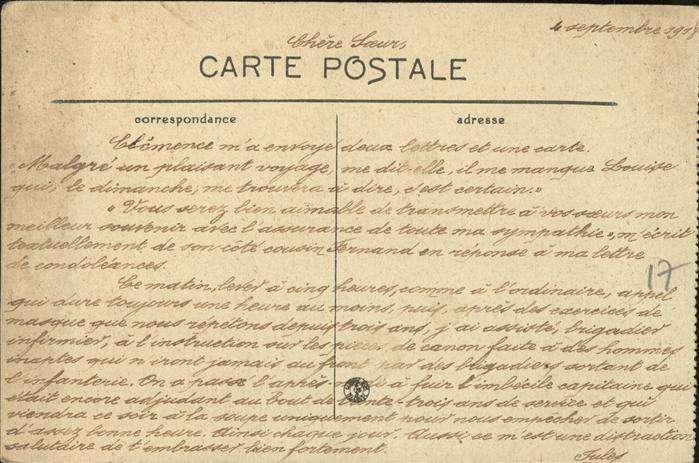 4 septembre 1918
Chère Sœur,
CARTE POSTALE
correspondance
adresse
Clémence m'a envoyé deux lettres et une carte.
"Malgré un plaisant voyage, me dit-elle, il me manque Louise
qui, le dimanche, me trouvera à dire, c'est certain."
"Vous serez bien aimable de transmettre à vos sœurs mon
meilleur souvenir avec l'assurance de toute ma sympathie", m'écrit
textuellement de son côté cousin Fernand en réponse à ma lettre
de condoléances.
17
Ce matin, lever à cinq heures, comme à l'ordinaire, appel
qui dure toujours une heure au moins, puis, après des exercices de
masque que nous répétons depuis trois ans, j'ai assisté, brigadier
infirmier, à l'instruction sur les pièces de canon faite à des hommes
inaptes qui n'iront jamais au front par des brigadiers sortant de
l'infanterie. On a passé l'après à fuir l'imbécile capitaine qui
était encore adjudant au bout de trois ans de service et qui
viendra ce soir à la soupe uniquement pour nous empêcher de sortir
d'assez bonne heure. Ainsi chaque jour. Aussi, ce m'est une distraction
salutaire de t'embrasser bien fortement.
Jules